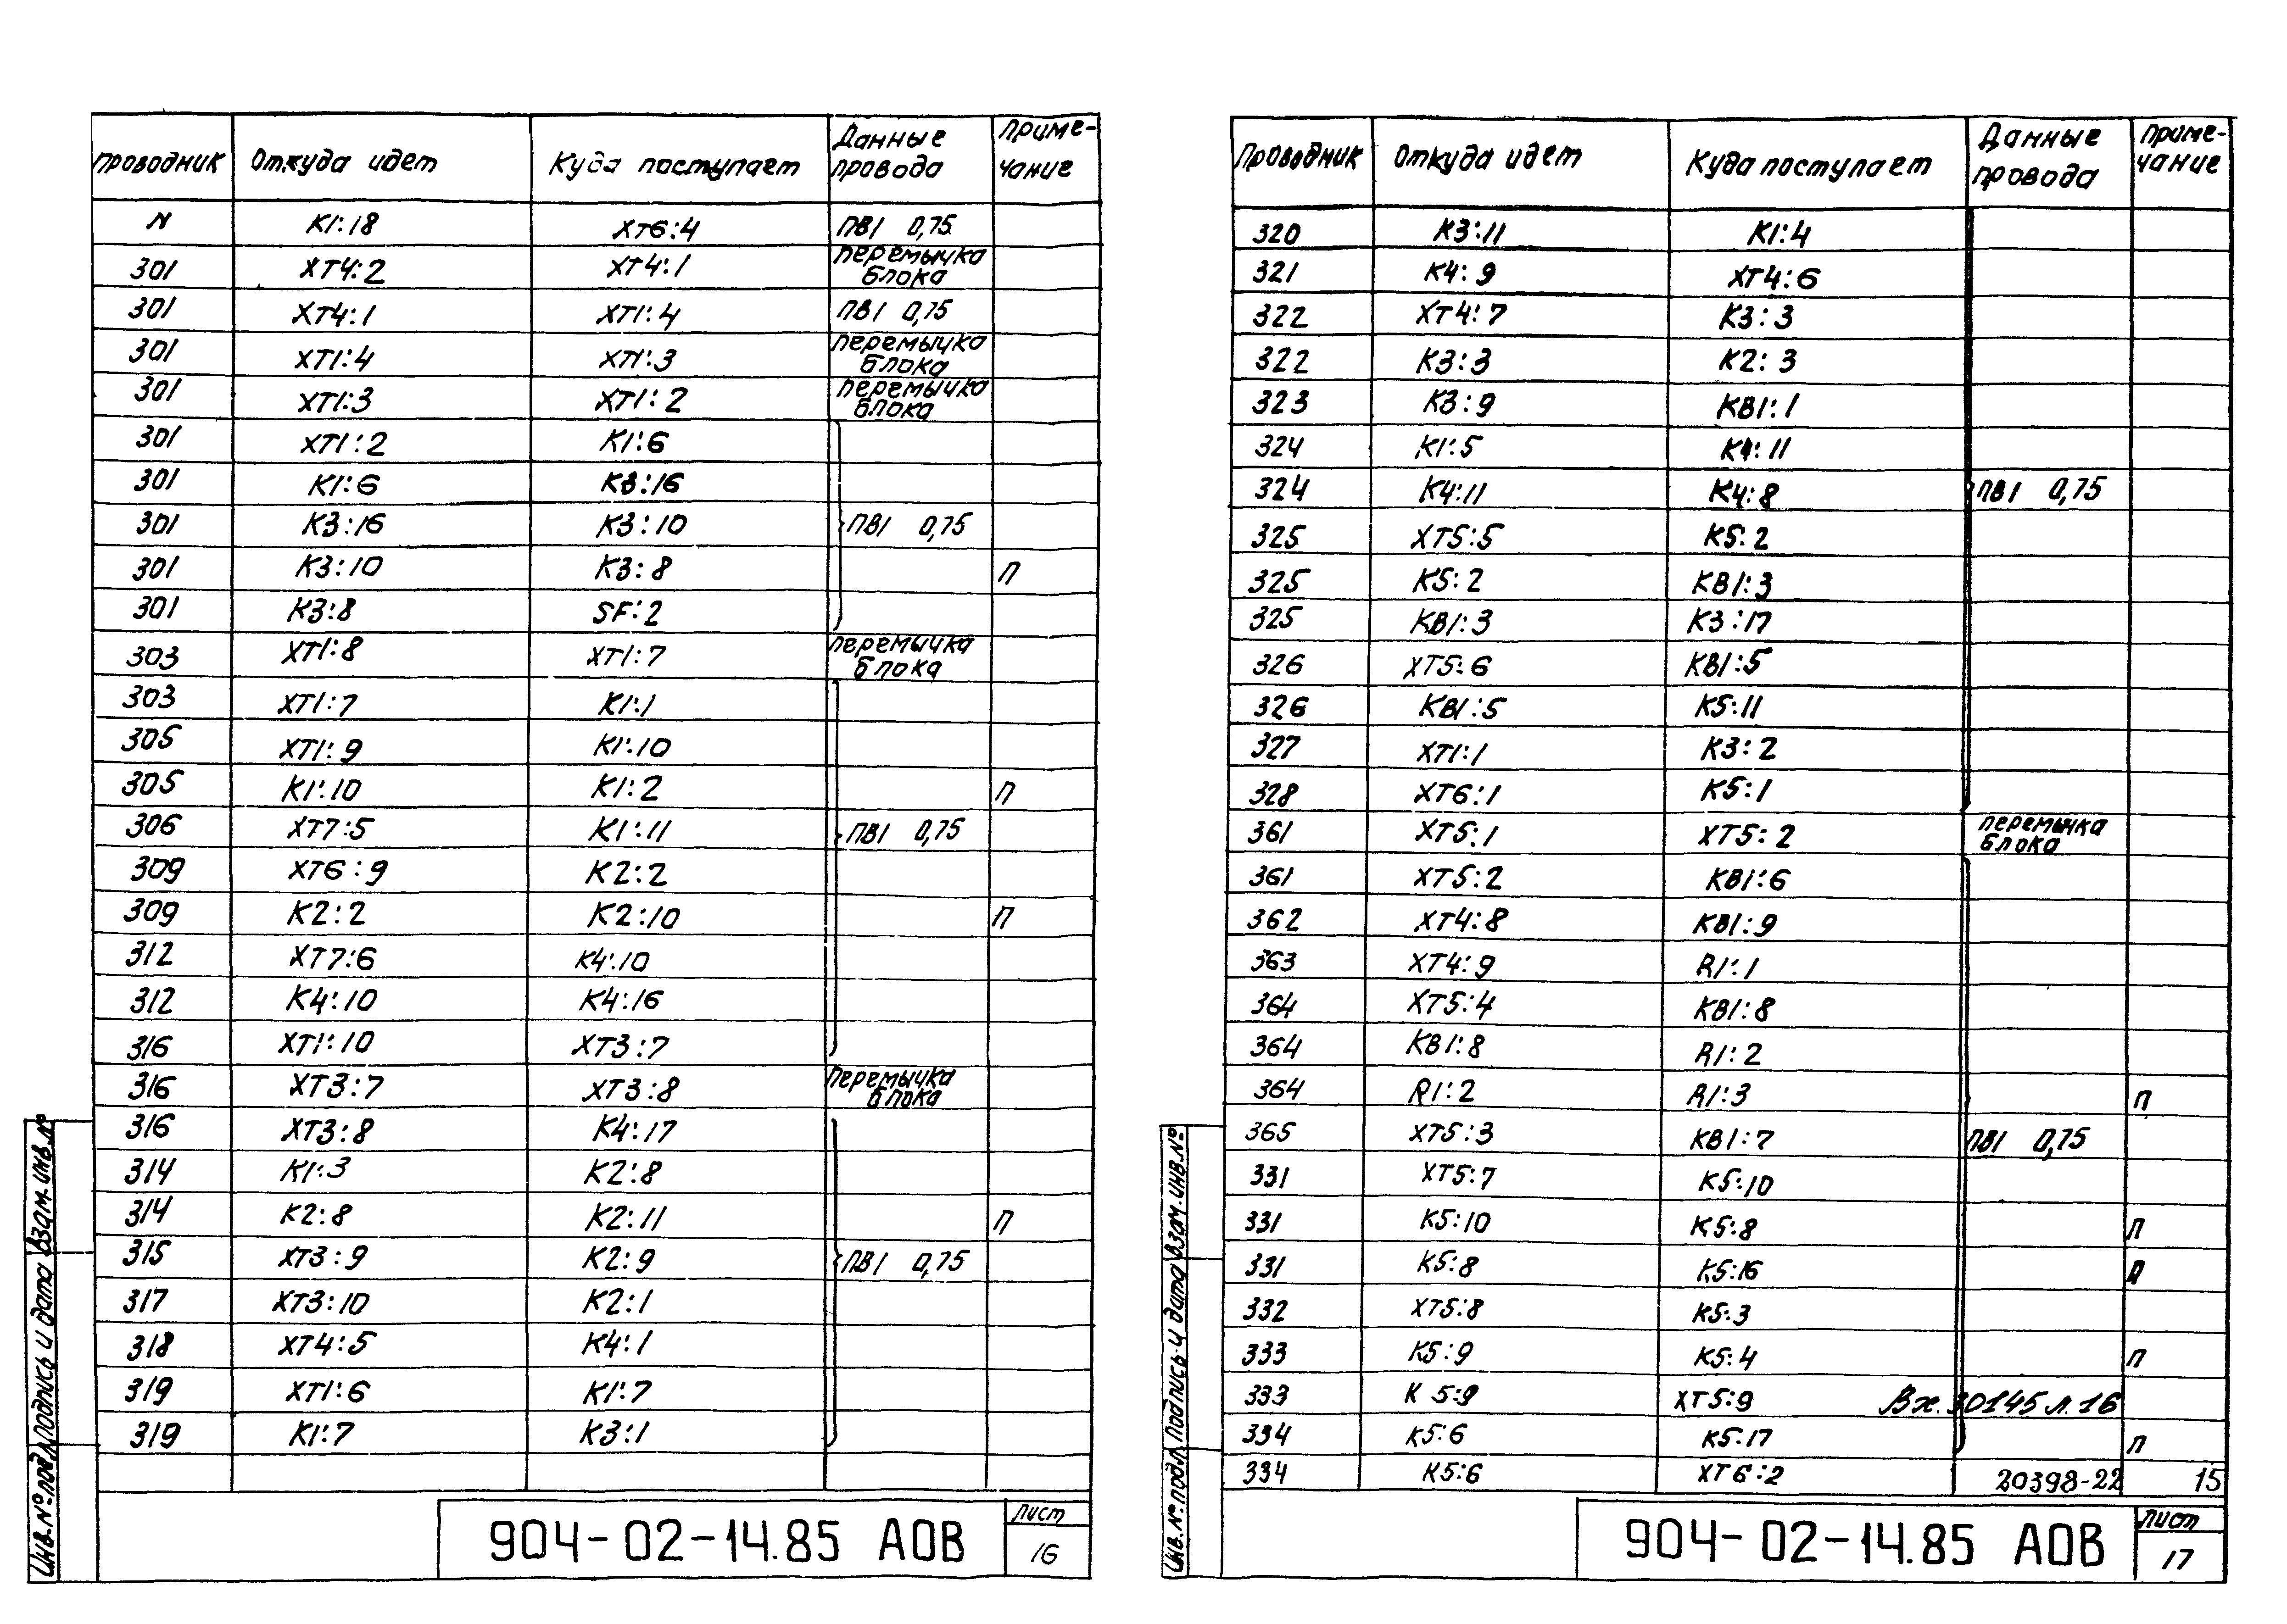 Проводник Откуда идет Куда поступает Данные провода Примечание
N К1:18 ХТ6:4 ПВ1 0,75
301 ХТ4:2 ХТ4:1 перемычка блока
301 ХТ4:1 ХТ1:4 ПВ1 0,75
301 ХТ1:4 ХТ1:3 перемычка блока
301 ХТ1:3 ХТ1:2 перемычка блока
301 ХТ1:2 К1:6
301 К1:6 К3:16
301 К3:16 К3:10 ПВ1 0,75
301 К3:10 К3:8 П
301 К3:8 SF:2
303 ХТ1:8 ХТ1:7 перемычка блока
303 ХТ1:7 К1:1
305 ХТ1:9 К1:10
305 К1:10 К1:2 П
306 ХТ7:5 К1:11 ПВ1 0,75
309 ХТ6:9 К2:2
309 К2:2 К2:10 П
312 ХТ7:6 К4:10
312 К4:10 К4:16
316 ХТ1:10 ХТ3:7
316 ХТ3:7 ХТ3:8 Перемычка блока
316 ХТ3:8 К4:17
314 К1:3 К2:8
314 К2:8 К2:11 П
315 ХТ3:9 К2:9 ПВ1 0,75
317 ХТ3:10 К2:1
318 ХТ4:5 К4:1
319 ХТ1:6 К1:7
319 К1:7 К3:1
Инв.№ подл. Подпись и дата Взам.инв.№
904-02-14.85 АОВ
Лист
16
Проводник Откуда идет Куда поступает Данные провода Примечание
320 К3:11 К1:4
321 К4:9 ХТ4:6
322 ХТ4:7 К3:3
322 К3:3 К2:3
323 К3:9 КВ1:1
324 К1:5 К4:11
324 К4:11 К4:8 ПВ1 0,75
325 ХТ5:5 К5:2
325 К5:2 КВ1:3
325 КВ1:3 К3:17
326 ХТ5:6 КВ1:5
326 КВ1:5 К5:11
327 ХТ1:1 К3:2
328 ХТ6:1 К5:1
361 ХТ5:1 ХТ5:2 перемычка блока
361 ХТ5:2 КВ1:6
362 ХТ4:8 КВ1:9
363 ХТ4:9 R1:1
364 ХТ5:4 КВ1:8
364 КВ1:8 R1:2
364 R1:2 R1:3 П
365 ХТ5:3 КВ1:7 ПВ1 0,75
331 ХТ5:7 К5:10
331 К5:10 К5:8 П
331 К5:8 К5:16 П
332 ХТ5:8 К5:3
333 К5:9 К5:4 П
333 К5:9 ХТ5:9 Вх. 30145 л. 16
334 К5:6 К5:17 П
334 К5:6 ХТ6:2 20398-22 15
Инв.№ подл. Подпись и дата Взам.инв.№
904-02-14.85 АОВ
Лист
17